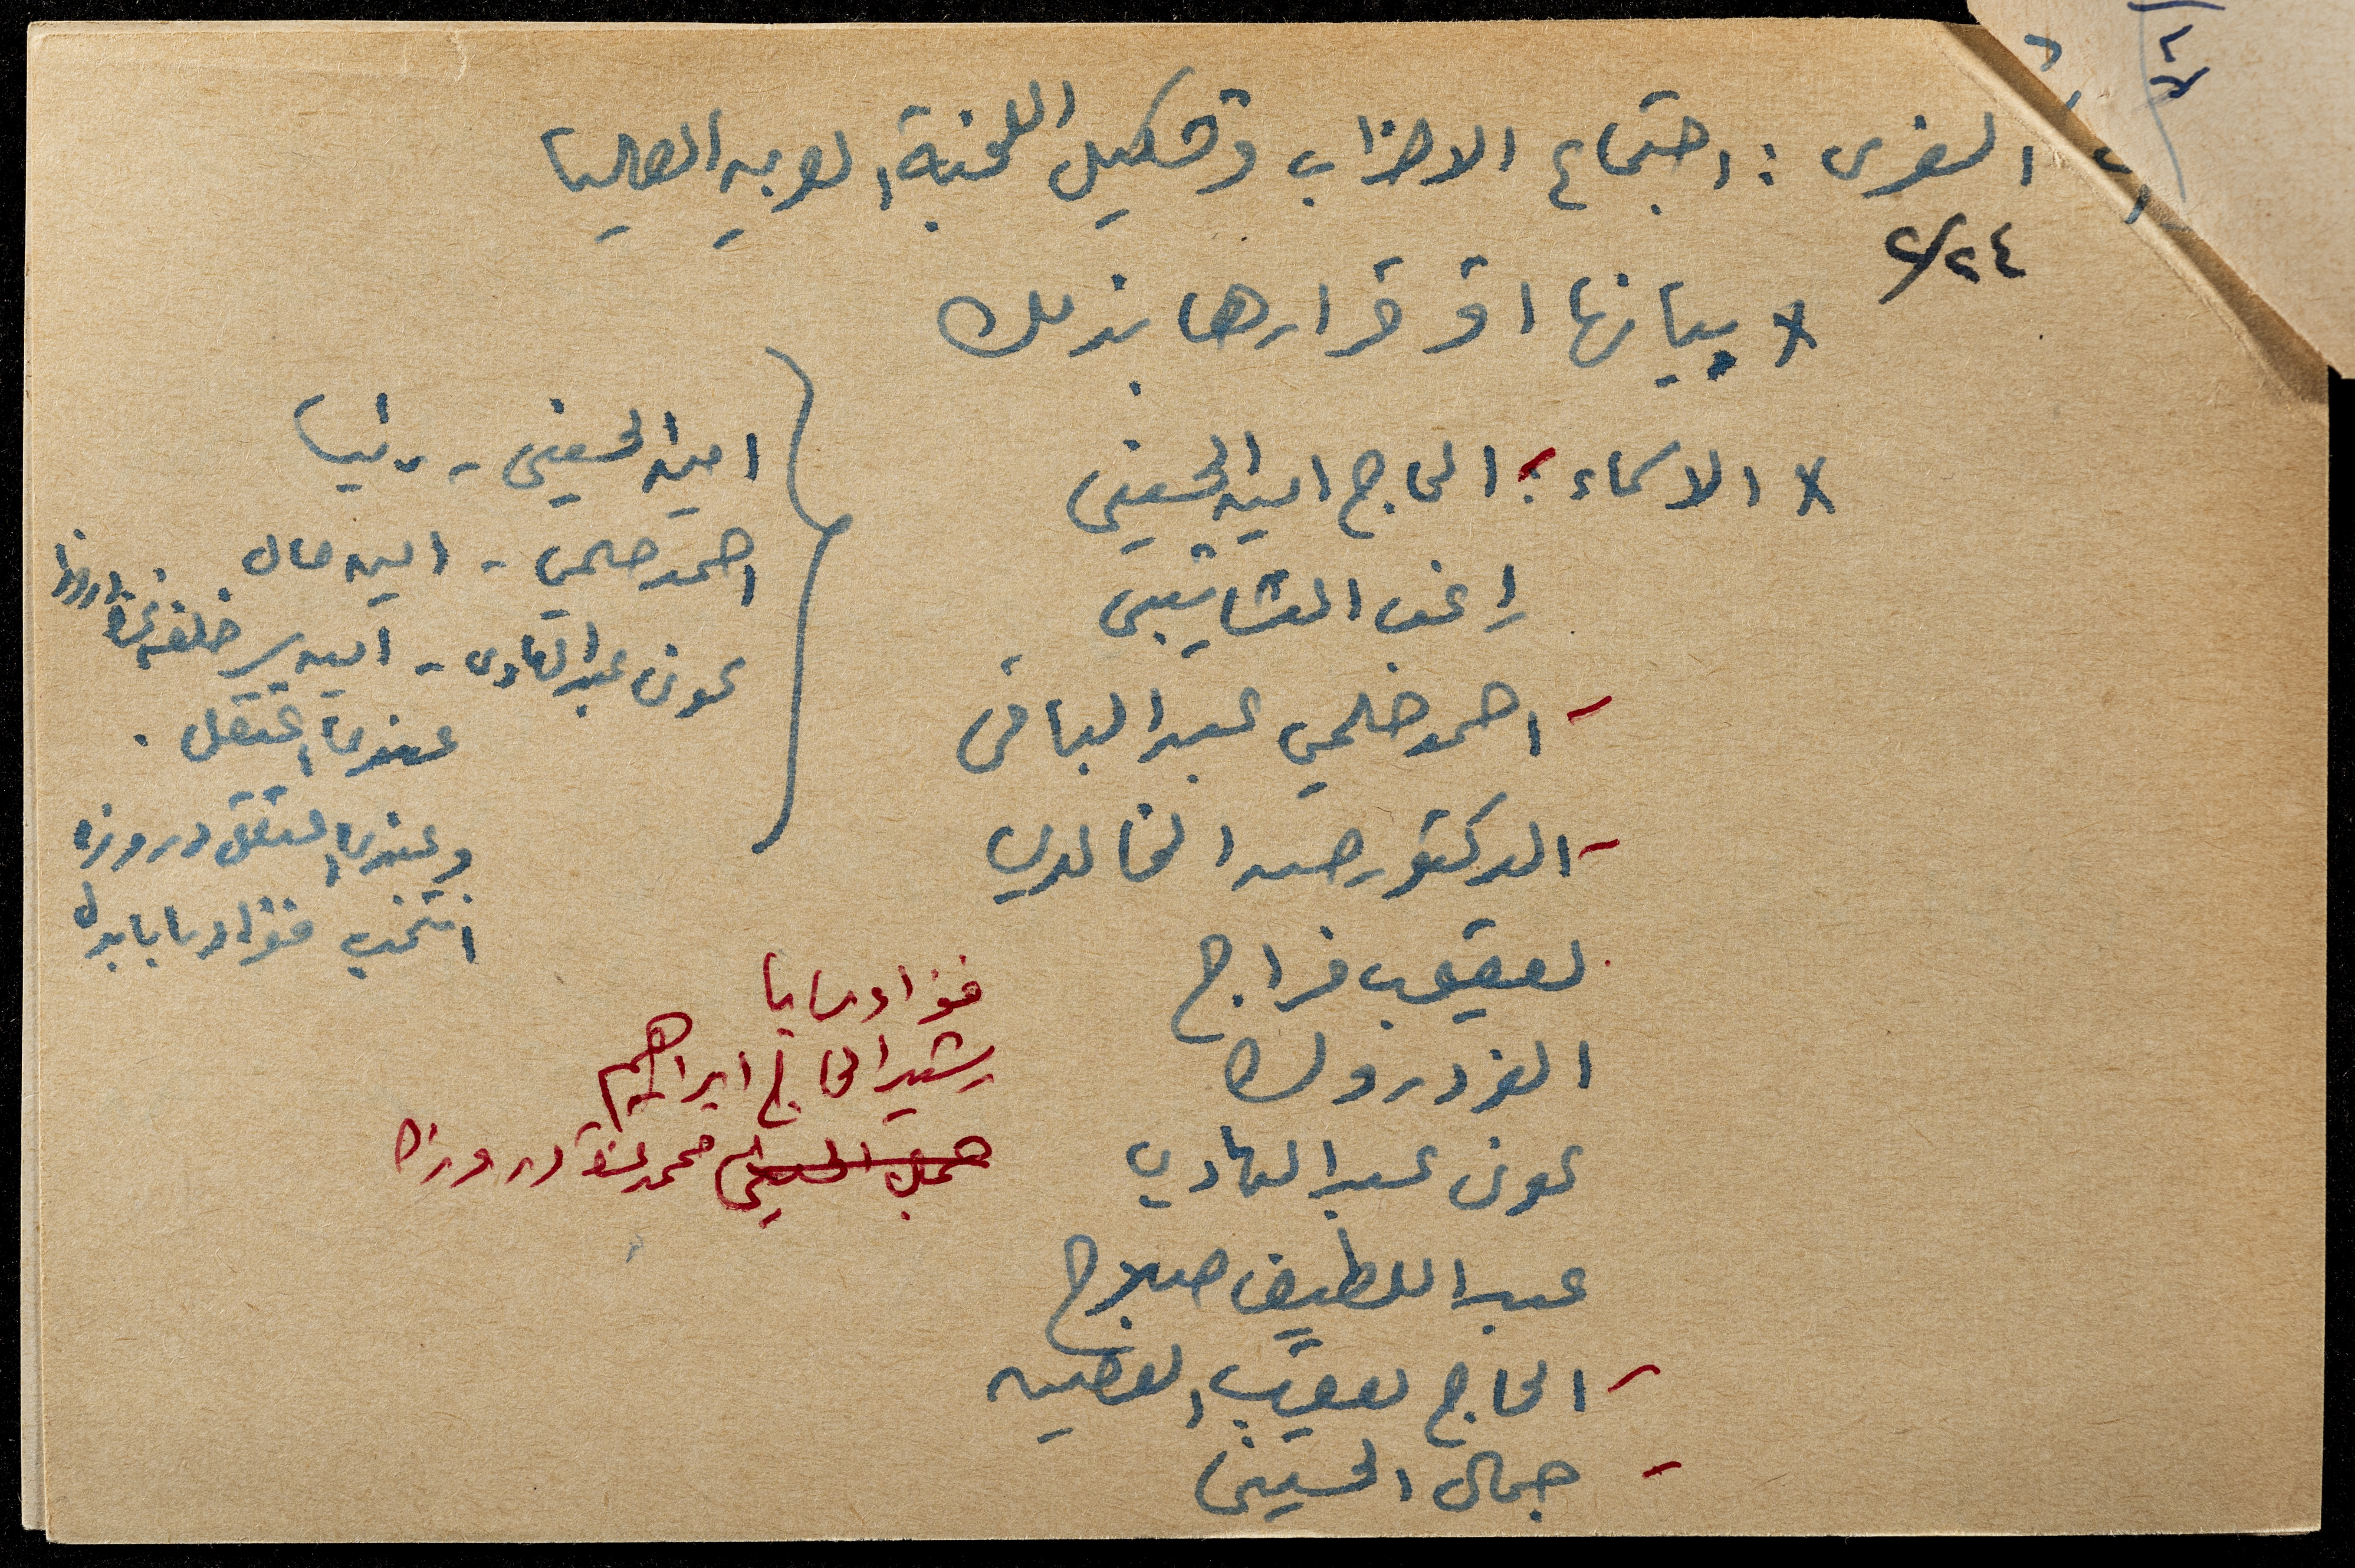 الغوري : اجتماع الاحزاب وتشكيل اللجنة العربيه العليا
٢/٢٤
x بيانها او قرارها بذلك
x الاسماء : الحاج امين الحسيني
راغب النشاشيبي
- احمد حلمي عبد الباقي
- الدكتور حسين الخالدي
يعقوب فراج
الفرد روك
عوني عبد الهادي
عبد اللطيف صلاح
- الحاج يعقوب الغصين
- جمال الحسيني
امين الحسيني - رئيسا
احمد حلمي - امين مال
عوني عبد الهادي - امين سر خلفه عزة دروزه
عندما اعتقل .
وعندما اعتقل دروزه
انتخب فؤاد سابا بدله
فؤاد سابا
رشيد الحاج ابراهيم
محمد عزة دروزه